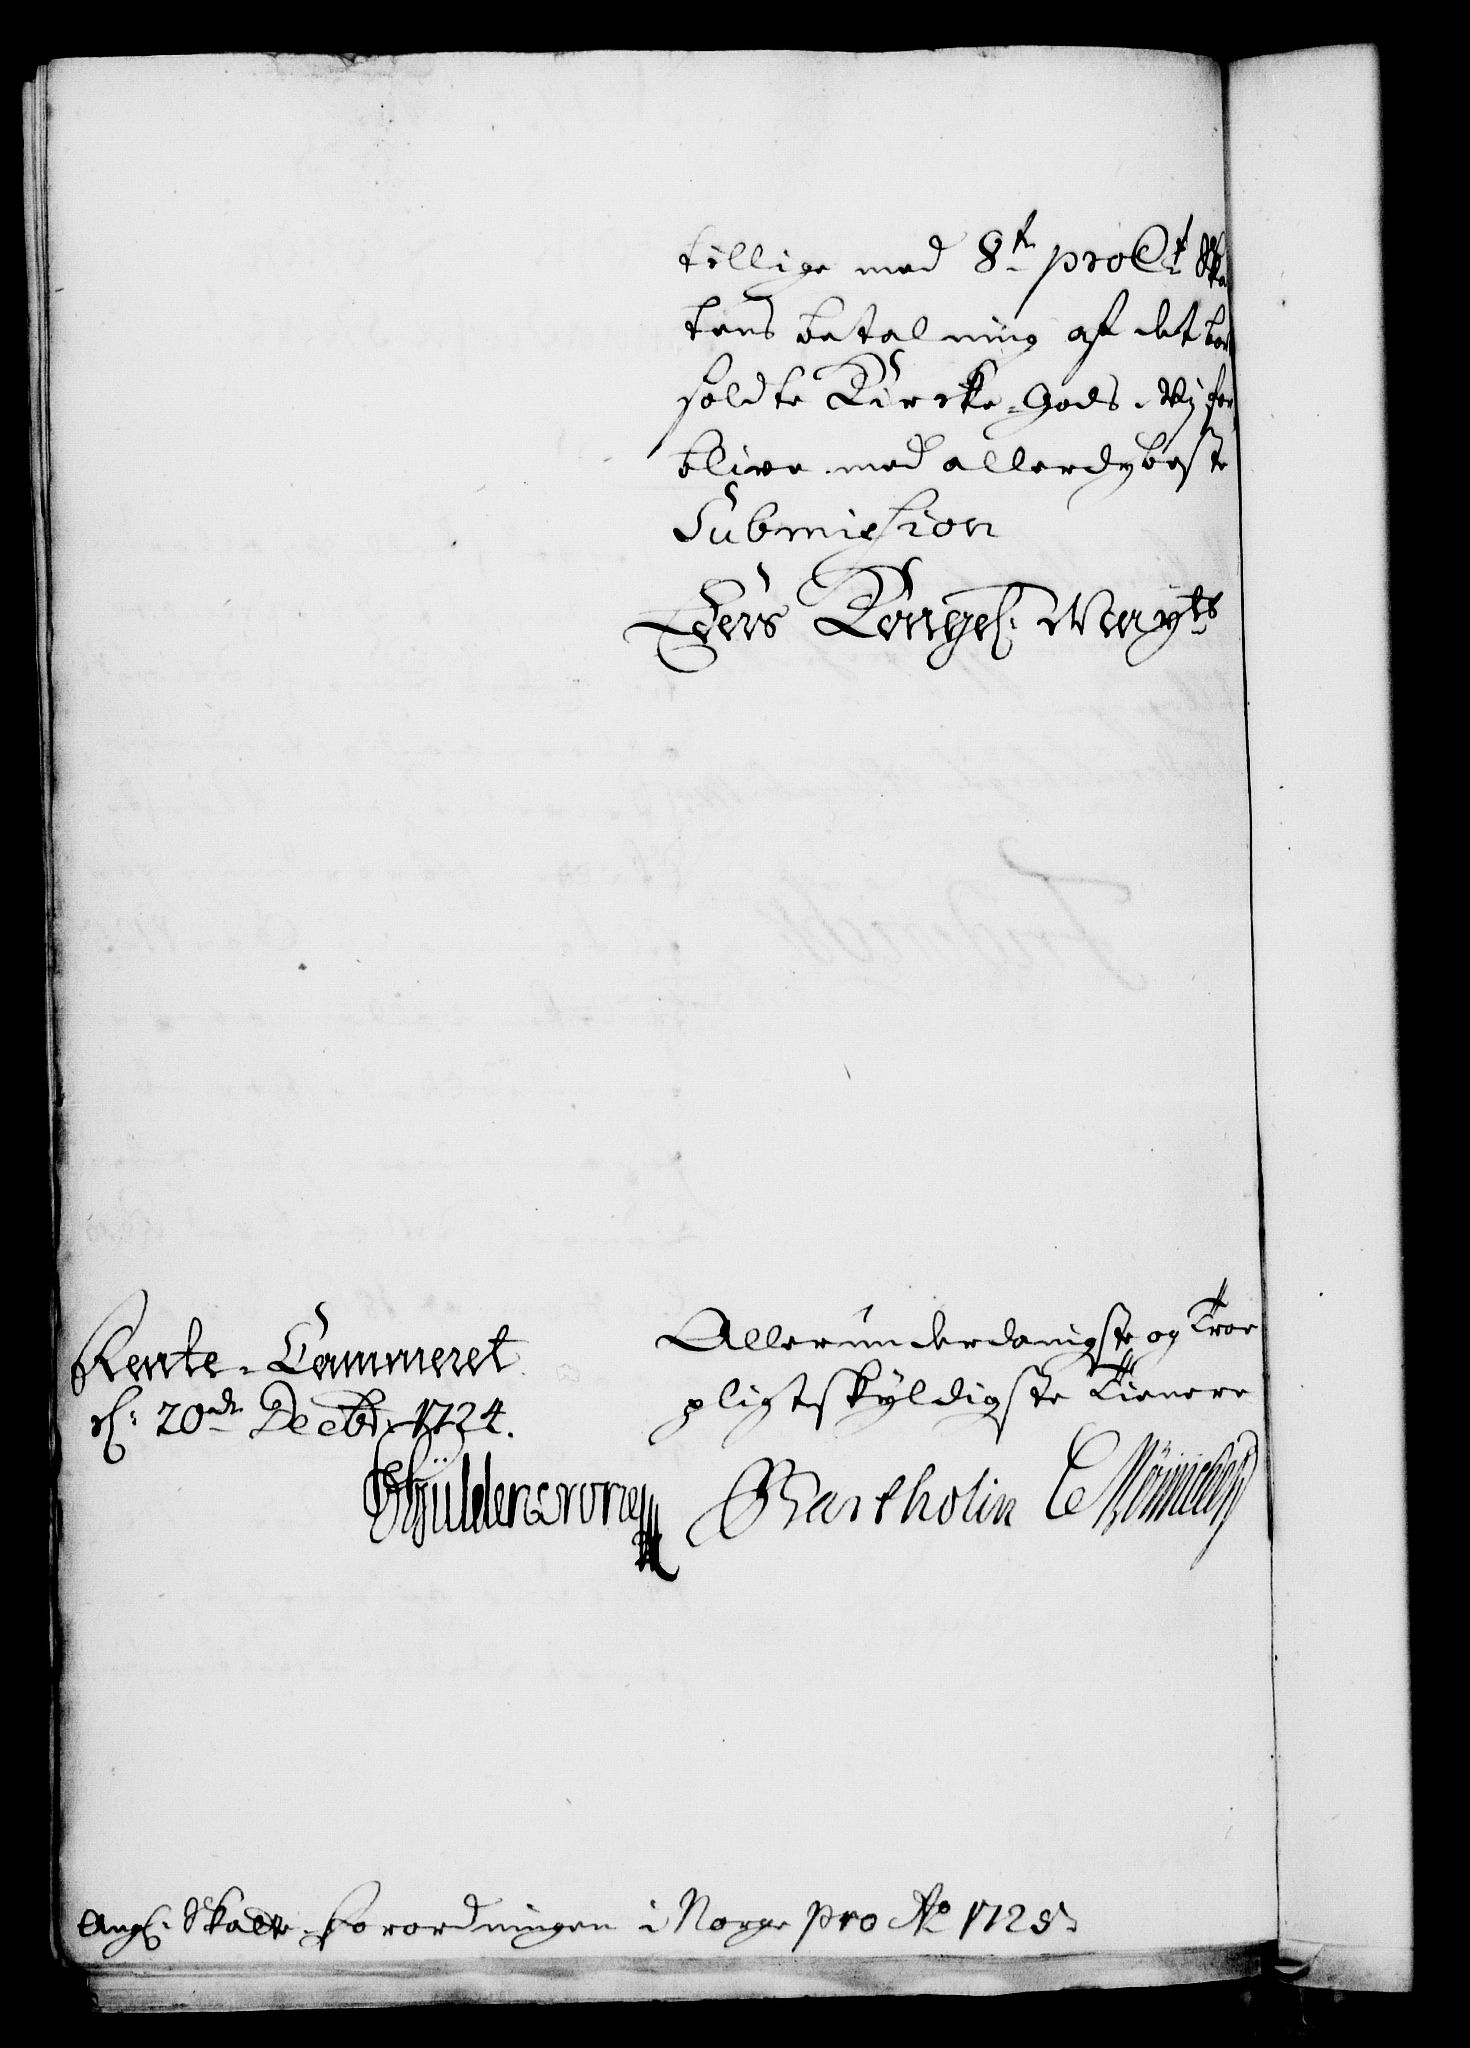 tillige med 8te pro Ct Ska
tens betalning af det bort
soldte Kircke-Gods. Vj for
blive med allerdybeste
Submission
Eders Kongel: Mayts
Rente-Cammeret
d: 20de Decbr 1724.
Allerunderdanigste og Troe
pligtskÿldigste Tienere
Gÿldencrone
Bartholin
Ang: Skatte-Forordningen i Norge pro Ao 1725.